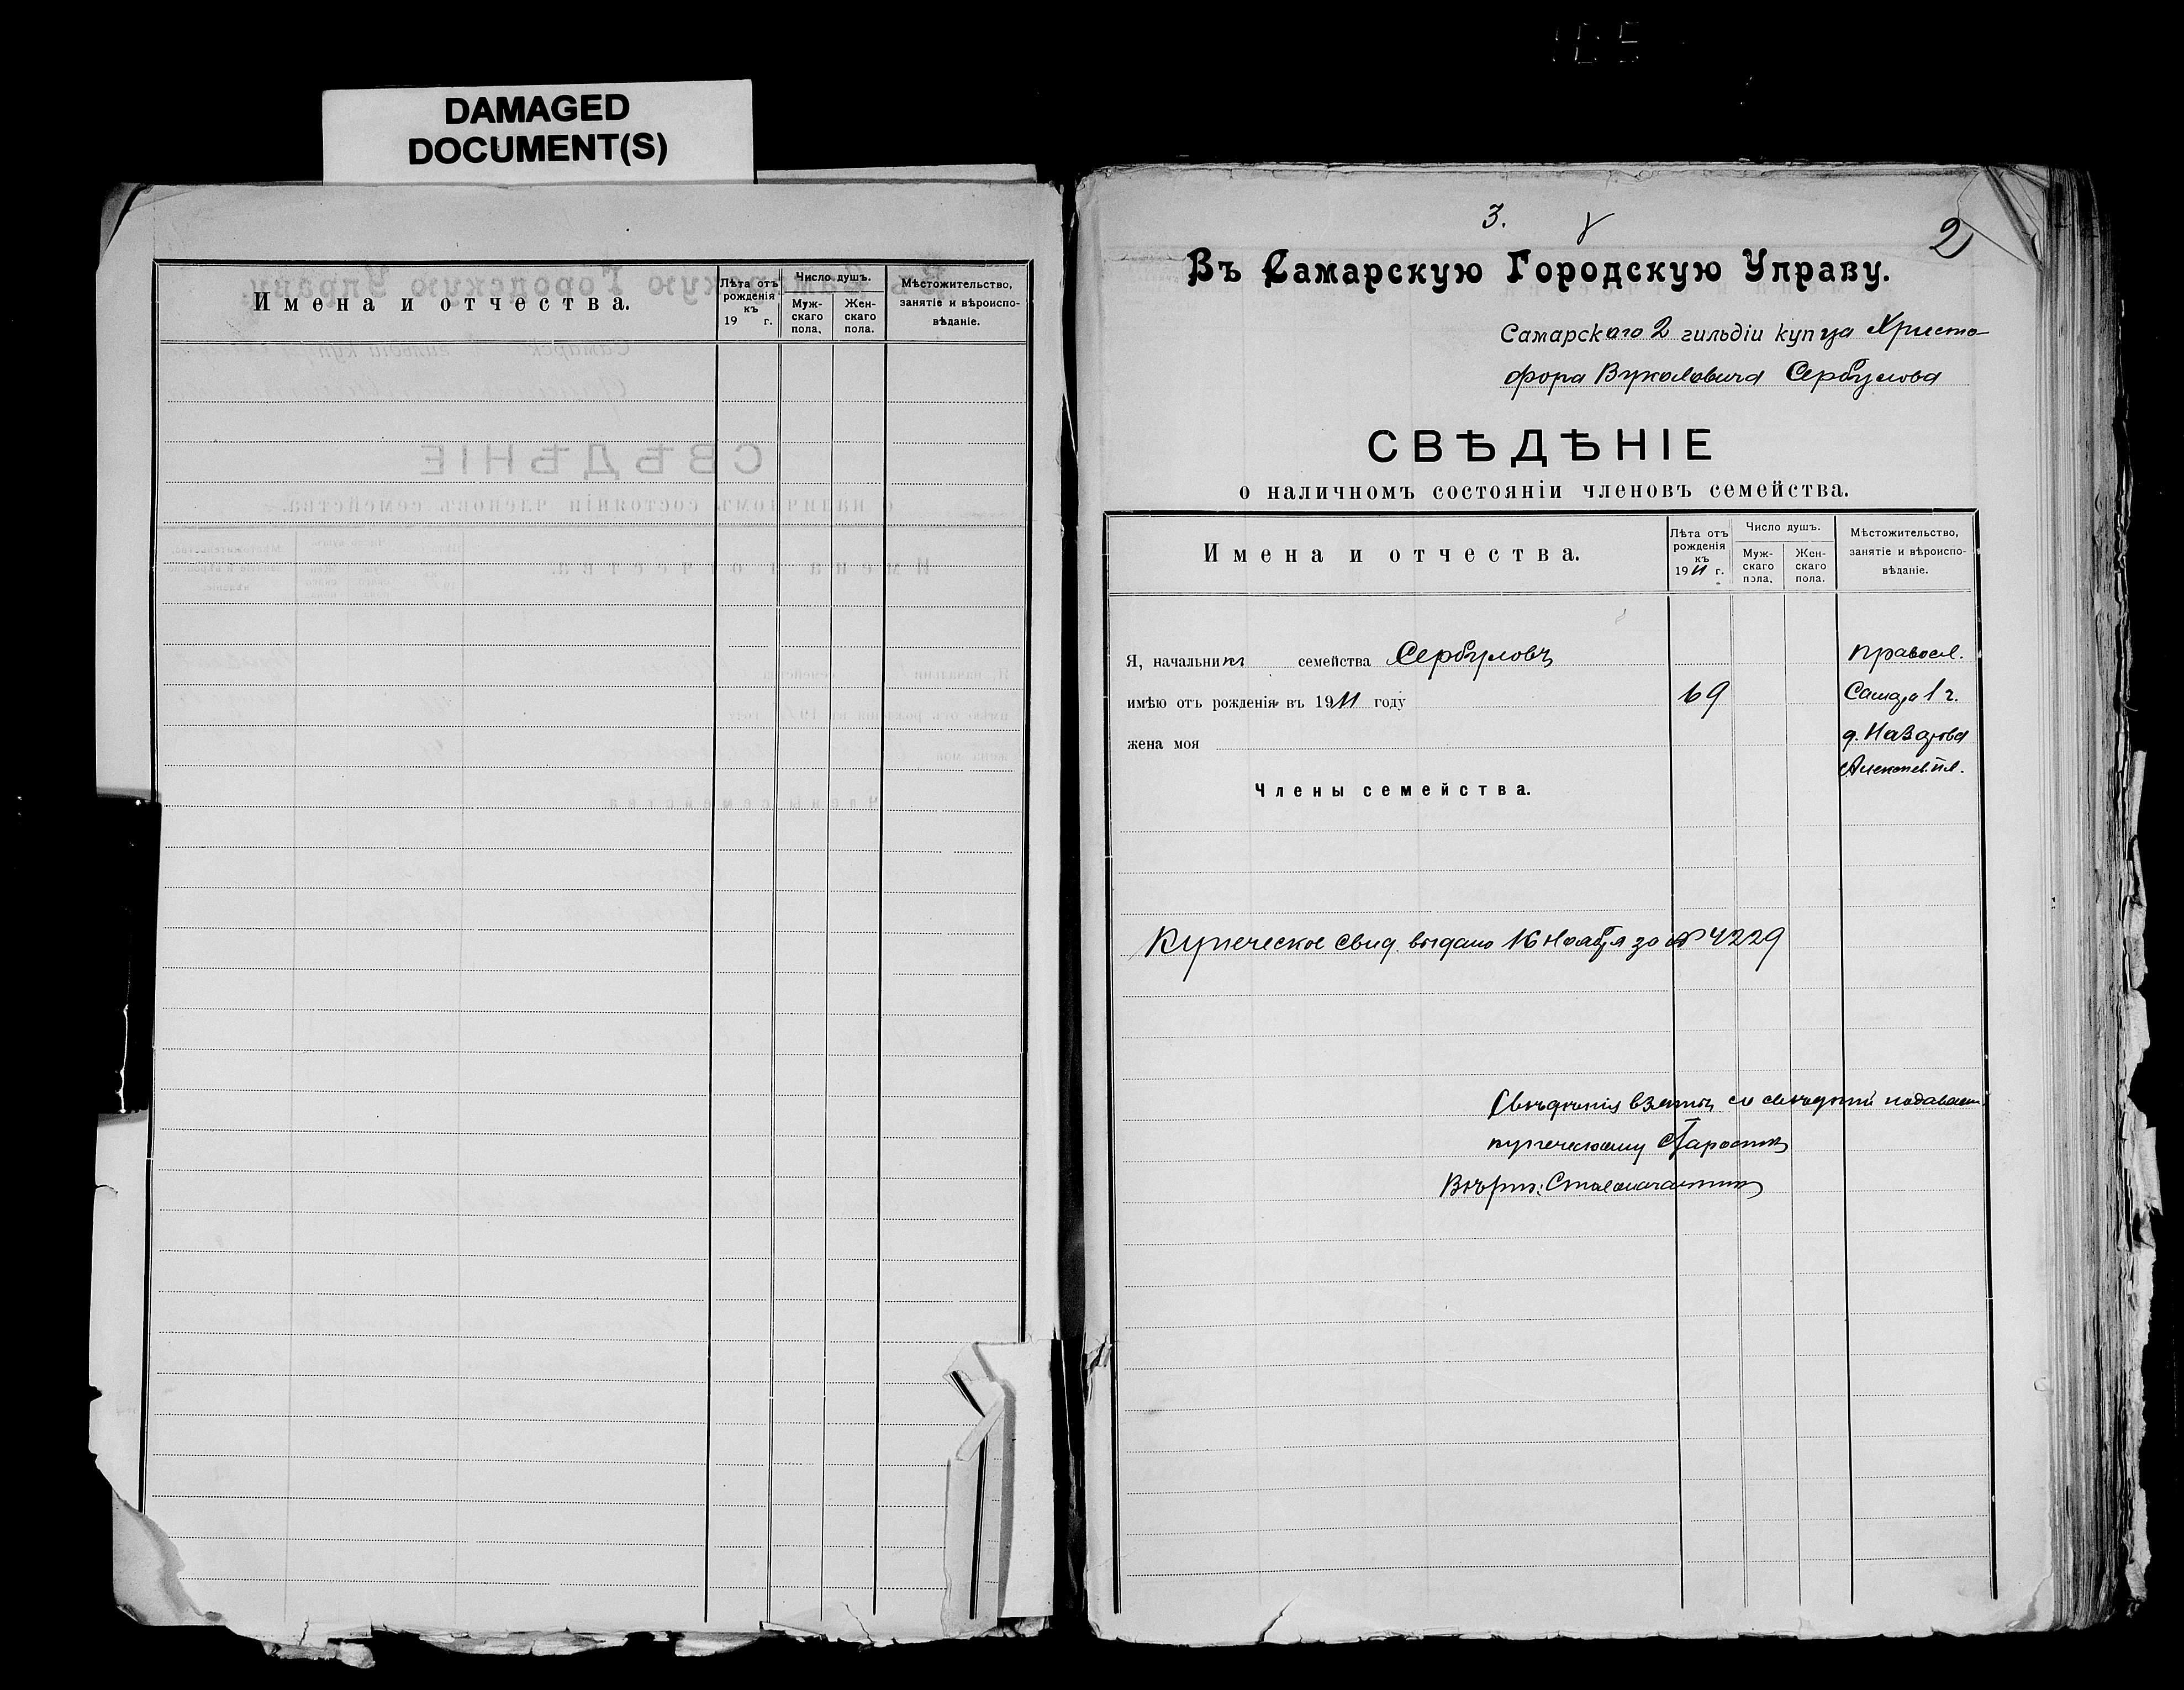 DAMAGED
DOCUMENT(S)
Имена и отчества.
Лѣта отъ рожденія къ 19 г.
Число душъ.
Муж-
скаго
пола.
Жен-
скаго
пола.
Мѣстожительство,
занятіе и вѣроиспо-
вѣданіе.
3.
2
Въ Самарскую Городскую Управу.
Самарскаго 2 гильдіи купца Христо-
фора Вуколовича Сербулова
СВѢДѢНІЕ
о наличномъ состояніи членовъ семейства.
Имена и отчества.
Лѣта отъ
рожденія
къ
1911 г.
Число душъ.
Муж-
скаго
пола.
Жен-
скаго
пола.
Мѣстожительство,
занятіе и вѣроиспо-
вѣданіе.
Я, начальникъ семейства Сербуловъ
правосл.
имѣю отъ рожденія въ 1911 году 69
Самара 1 ч.
жена моя
д. Назарова
Алексѣев. пл.
Члены семейства.
Купеческое свид. выдано 16 Ноября за № 4229
Свѣдѣнія взяты со свѣдѣній
купеческому Старостѣ
Вѣрно: Столоначальникъ